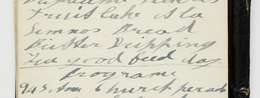 Fruit Cake a la
Simnos Bread
Butter Dripping
good feed day
Programme
9.45. Am Church parade